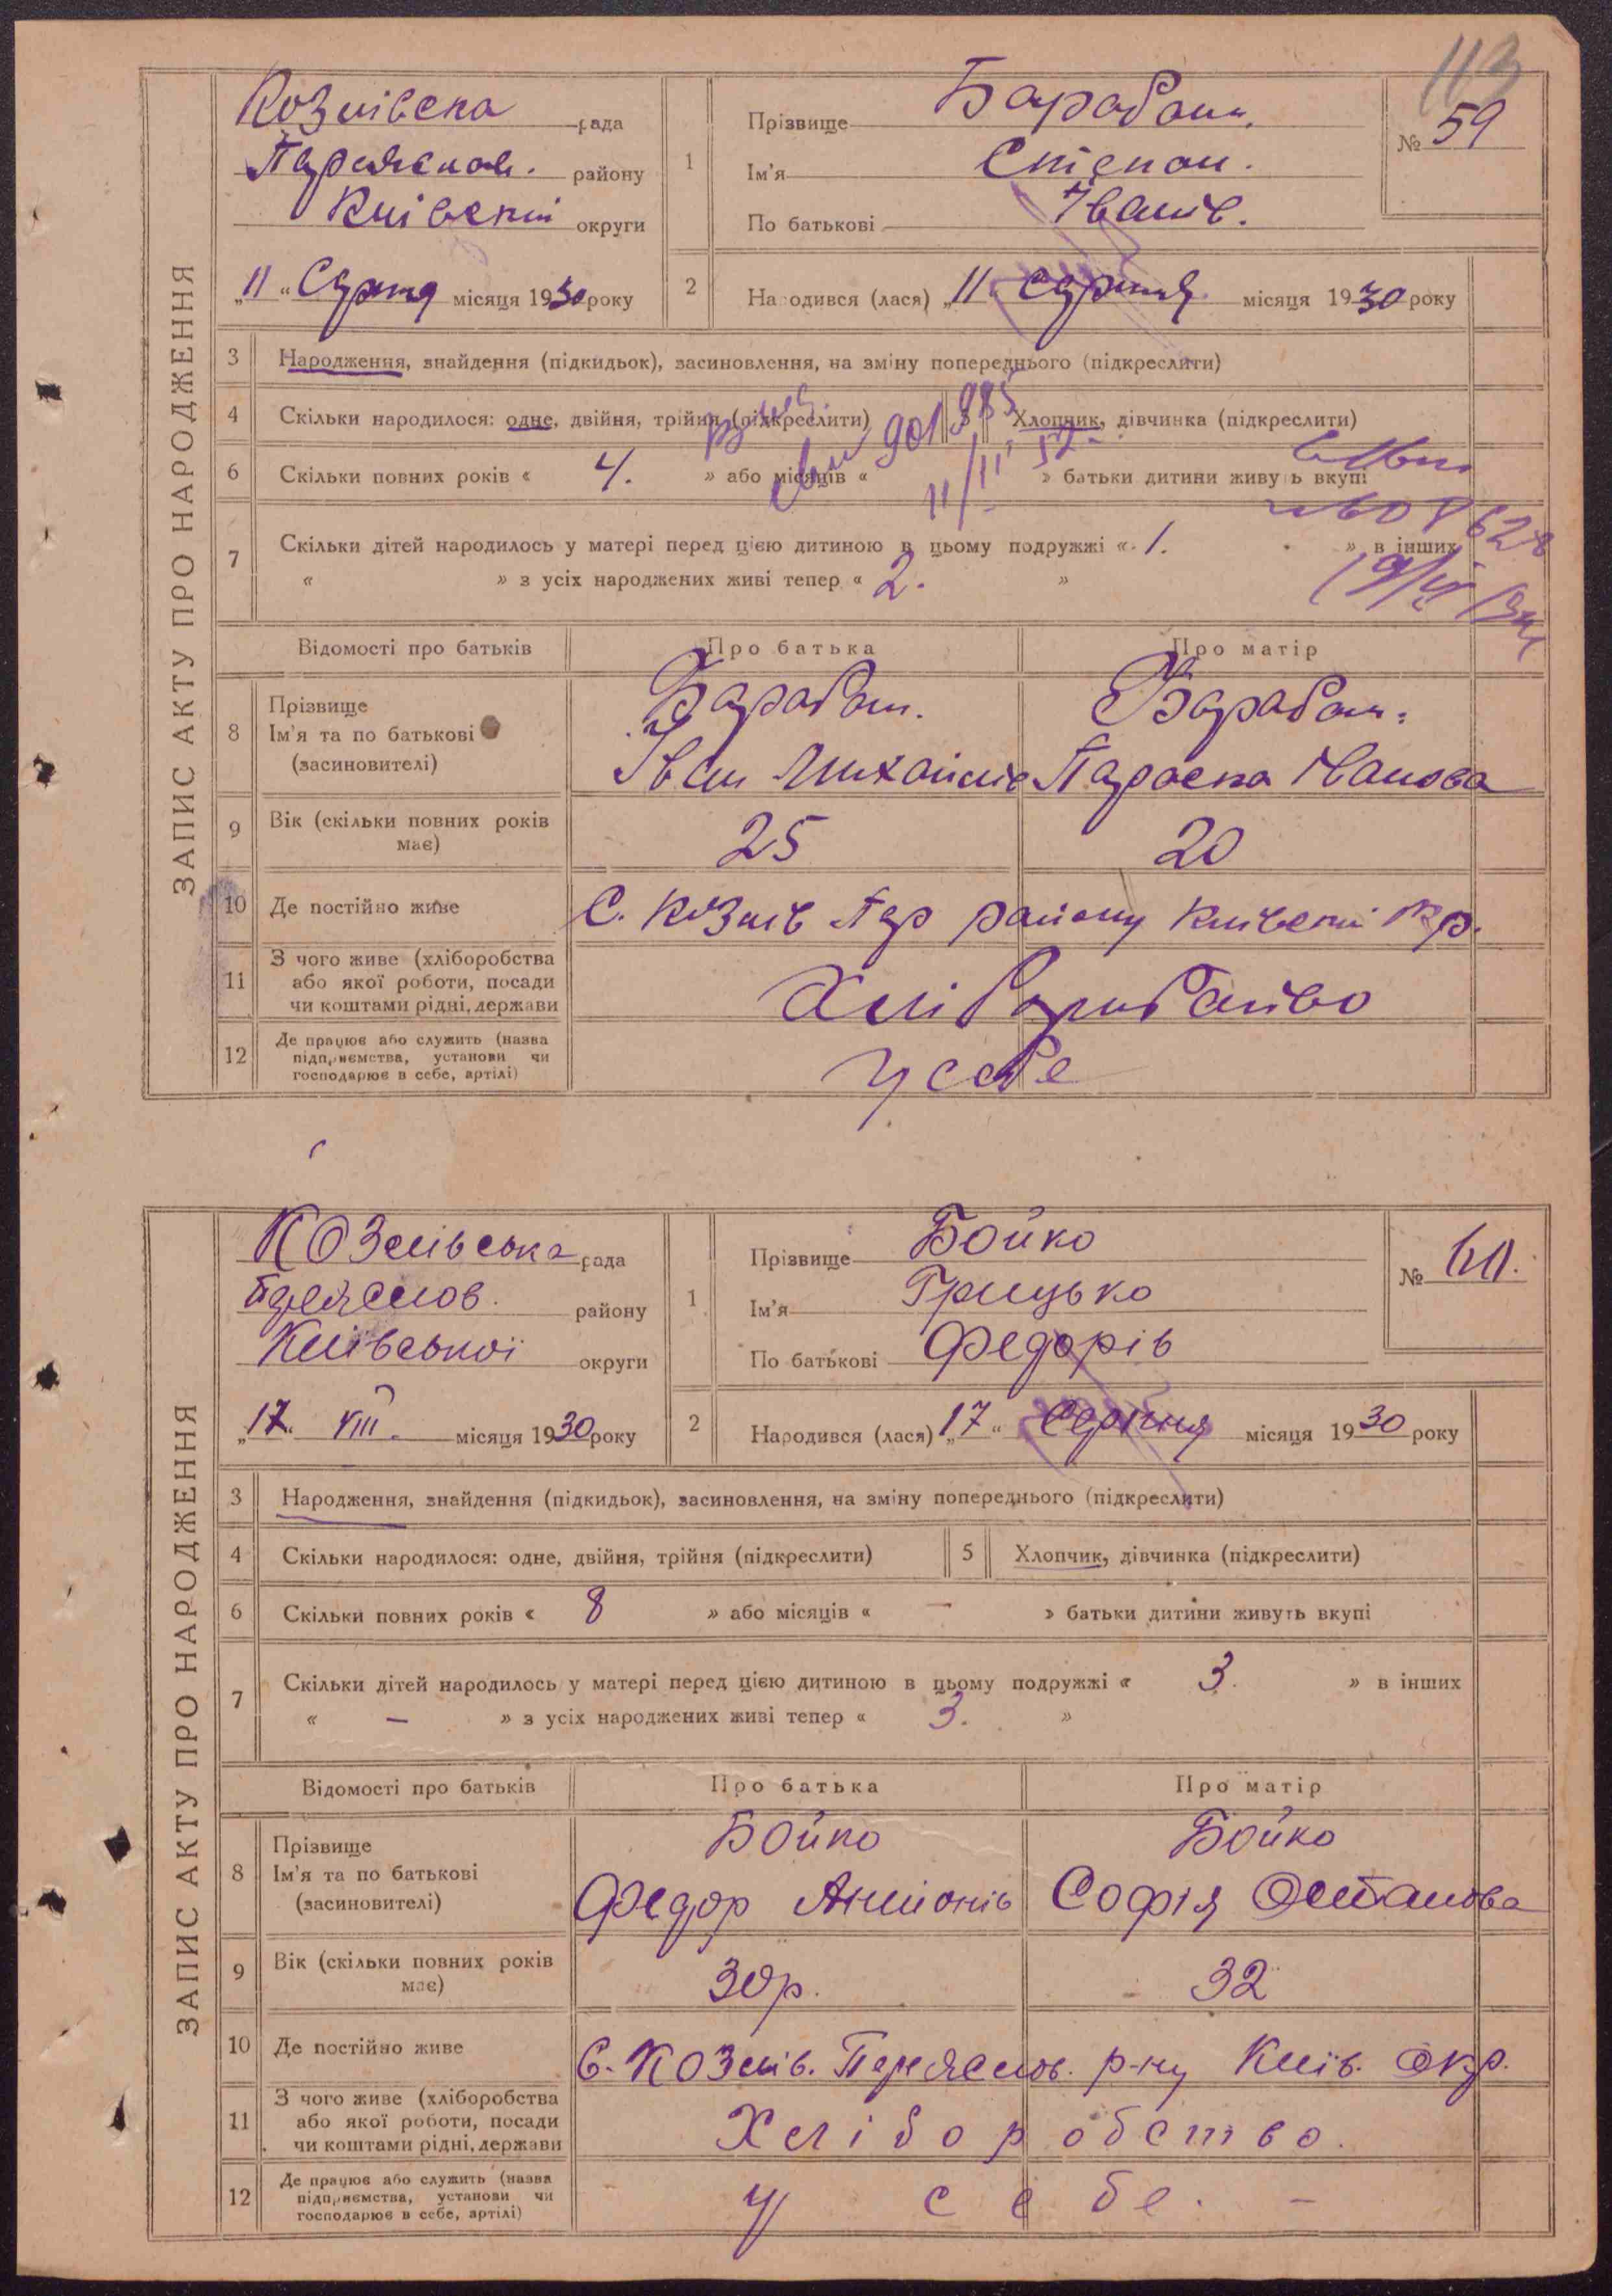 113
ЗАПИС АКТУ ПРО НАРОДЖЕННЯ
Козлівска рада
Переяслов. району
Київскої округи
„11“ Серпня місяця 1930 року
1
Прізвище Барабаш.
Ім'я Степан.
По батькові Іванів.
№ 59
2
Народився (лася) „11“ Серпня місяця 1930 року
3 Народження, знайдення (підкидьок), засиновлення, на зміну попереднього (підкреслити)
4 Скільки народилося: одне, двійня, трійня (підкреслити) 5 Хлопчик, дівчинка (підкреслити)
6 Скільки повних років « 4. » або місяців « » батьки дитини живуть вкупі
7 Скільки дітей народилось у матері перед цією дитиною в цьому подружжі « 1. » в інших
« » з усіх народжених живі тепер « 2. »
Відомості про батьків Про батька Про матір
8 Прізвище
Ім'я та по батькові
(засиновителі)
Барабаш. Барабаш.
Іван Михайлів Параска Іванова
9 Вік (скільки повних років
має)
25 20
10 Де постійно живе С. Козлів Пер району Київскої окр.
11 З чого живе (хліборобства
або якої роботи, посади
чи коштами рідні, держави
12 Де працює або служить (назва
підприємства, установи чи
господарює в себе, артілі)
У себе
ЗАПИС АКТУ ПРО НАРОДЖЕННЯ
Козлівська рада
Переяслов. району
Київської округи
„17“ VIII. місяця 1930 року
1
Прізвище Бойко
Ім'я Грицько
По батькові Федорів
№ 60.
2
Народився (лася) „17“ Серпня місяця 1930 року
3 Народження, знайдення (підкидьок), засиновлення, на зміну попереднього (підкреслити)
4 Скільки народилося: одне, двійня, трійня (підкреслити) 5 Хлопчик, дівчинка (підкреслити)
6 Скільки повних років « 8 » або місяців « — » батьки дитини живуть вкупі
7 Скільки дітей народилось у матері перед цією дитиною в цьому подружжі « 3. » в інших
« — » з усіх народжених живі тепер « 3. »
Відомості про батьків Про батька Про матір
8 Прізвище
Ім'я та по батькові
(засиновителі)
Бойко Бойко
Федор Антонів Софія Остапова
9 Вік (скільки повних років
має)
30р. 32
10 Де постійно живе С. Козлів. Переяслов. р-ну Київ. Окр.
11 З чого живе (хліборобства
або якої роботи, посади
чи коштами рідні, держави
Хліборобство.
12 Де працює або служить (назва
підприємства, установи чи
господарює в себе, артілі)
У себе. —